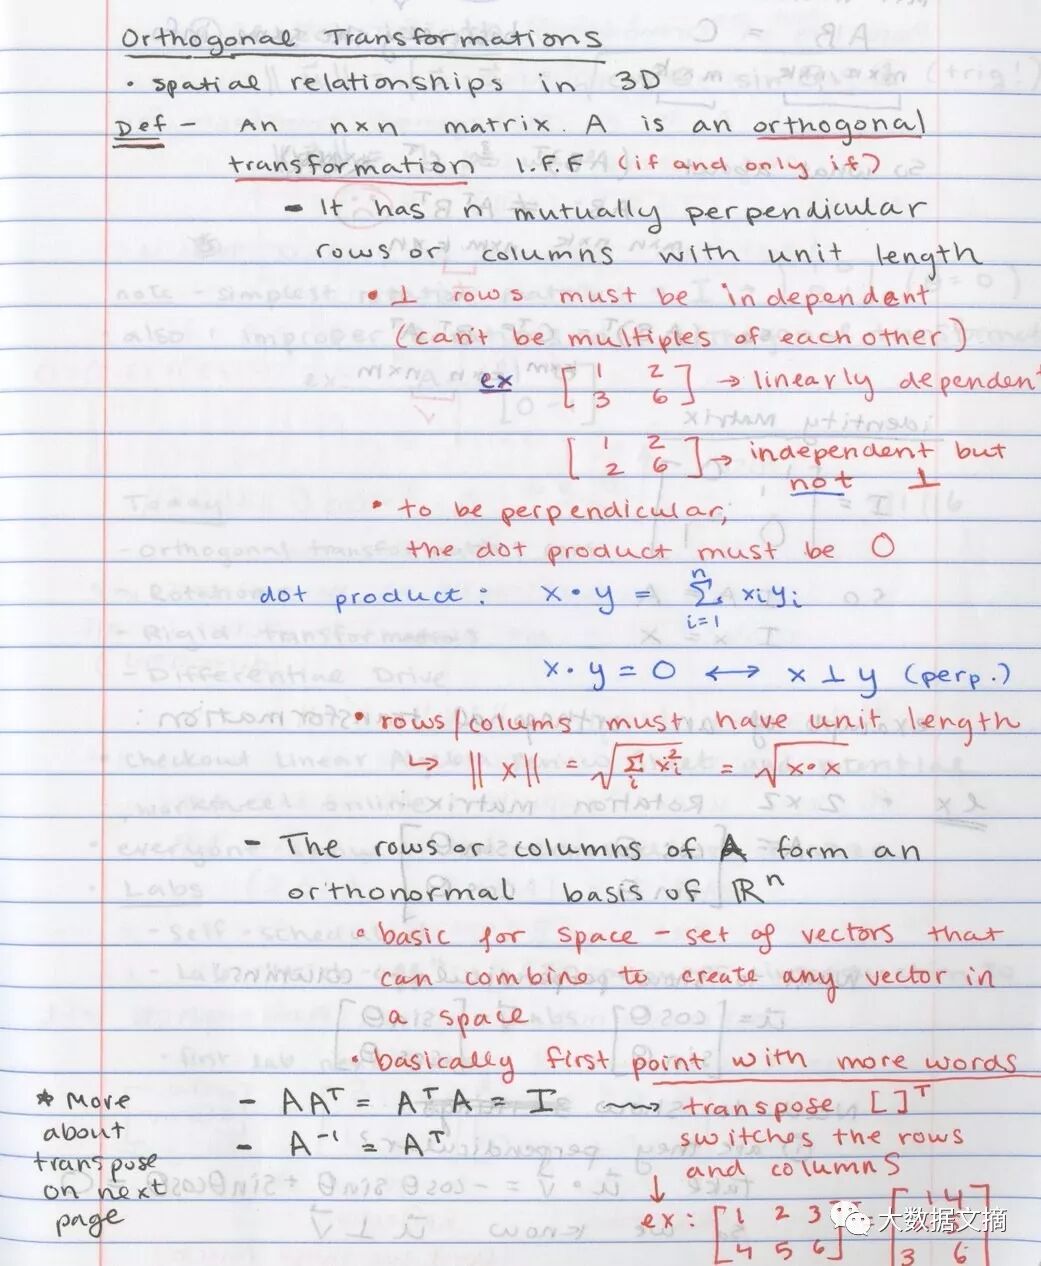 Orthogonal Transformations
• spatial relationships in 3D
Def - An nxn matrix A is an orthogonal
transformation I.F.F (if and only if)
- It has n mutually perpendicular
rows or columns with unit length
• ⊥ rows must be independent
(can't be multiples of each other)
ex [1 2 → linearly dependent
3 6]
[1 2 → independent but
2 6] not ⊥
• to be perpendicular,
the dot product must be 0
dot product: x • y = Σ_{i=1}^{n} xᵢyᵢ
x • y = 0 ↔ x ⊥ y (perp.)
• rows/colums must have unit length
↳ ||x|| = √(Σᵢ xᵢ²) = √(x•x)
- The rows or columns of A form an
orthonormal basis of ℝⁿ
• basic for space - set of vectors that
can combine to create any vector in
a space
• basically first point with more words
- AAᵀ = AᵀA = I → transpose [ ]ᵀ
- A⁻¹ = Aᵀ switches the rows
and columns
* More
about
transpose
on next
page
ex: [1 2 3 = [1 4
4 5 6]
3 6]
大数据文摘